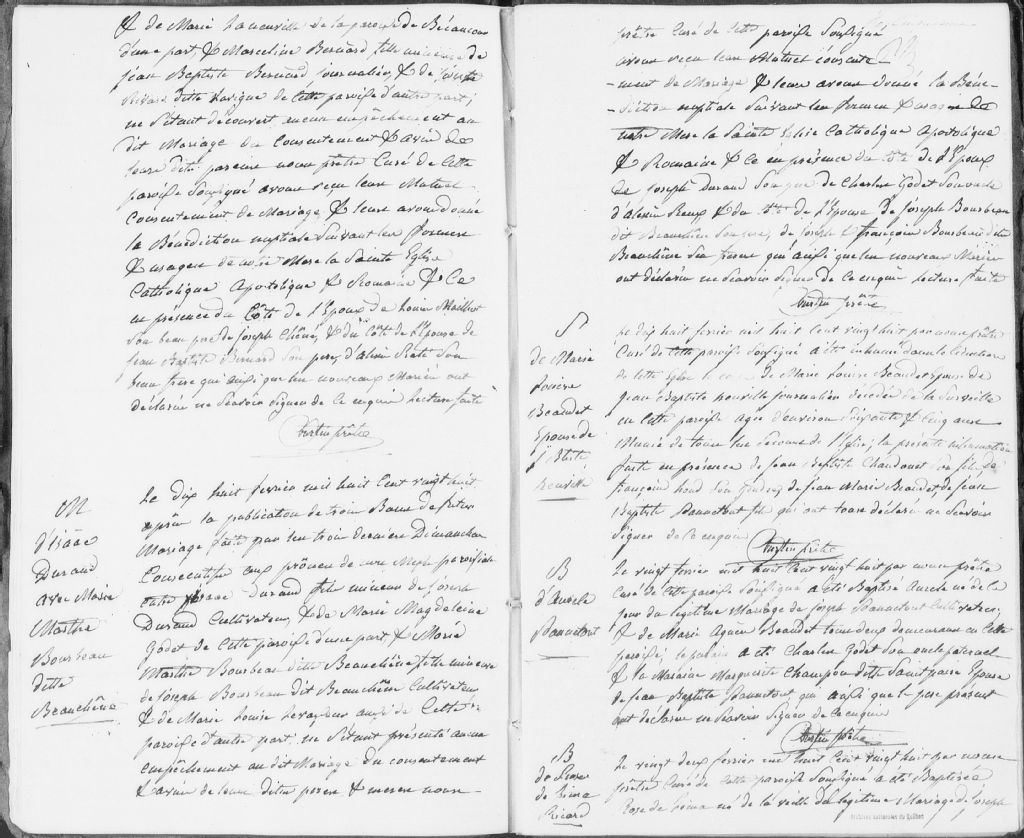 & de Marie Laneuville de la paroisse de Bécancour
d'une part, & Marceline Bernard fille mineure de
Jean Baptiste Bernard, journalier, & de
ditte de Cette paroisse d'autre part;
ne s'étant découvert aucun empêchement au
dit Mariage du Consentement & avis de
leurs parens nous prêtre Curé de Cette
paroisse Soussigné avons reçu leur Mutuel
Consentement de Mariage, & leur avons donné
la Bénédiction nuptiale Suivant les formes
& usages de notre Mere la Sainte Eglise
Catholique Apostolique & Romaine & Ce
en présence du Côté de l'Epoux de Louis
Son beau pere de Joseph Chêné, & du Côté de l'Epouse de
Jean Baptiste Bernard Son pere, d'Alexis Son
beau frere qui ainsi que les nouveaux Mariés ont
déclaré ne Scavoir Signer de Ce enquis Lecture faite
ptre
M
d'Isâac
Durand
avec Marie
Marthe
Bourbeau
ditte
Beauchêne
Le dix huit fevrier mil huit Cent vingt huit
après la publication de trois Bans de futur
Mariage faite par les trois derniers Dimanches
Consecutifs aux prônes de notre Messe paroissiale
entre Isaac Durand fils mineur de Joseph
Durand Cultivateur, & de Marie Magdeleine
Godet de Cette paroisse d'une part, & Marie
Marthe Bourbeau ditte Beauchêne fille mineure
de Joseph Bourbeau dit Beauchêne Cultivateur
& de Marie Louise Levasseur aussi de Cette
paroisse d'autre part; ne S'étant présenté aucun
empêchement au dit Mariage du consentement
& avis de leurs dits peres & meres nous
prêtre Curé de Cette paroisse Soussigné
avons reçu leur Mutuel consente-
-ment de Mariage & leur avons donné la Béné-
-diction nuptiale Suivant les formes & usages de
notre Mere la Sainte Eglise Catholique Apostolique
& Romaine & Ce en présence du Côté de l'Epoux
de Joseph Durand Son pere de Charles Godet Son oncle
d'Alexis & du Côté de l'Epouse de Joseph Bourbeau
dit Beauchêne Son pere, de Joseph & françois Bourbeau dit
Beauchêne Ses freres qui ainsi que les nouveaux Mariés
ont déclaré ne Scavoir Signer de Ce enquis Lecture faite
prêtre
S
de Marie
Louise
Beaudet
Epouse de
J. Btste
Neuville
Le dix huit fevrier mil huit Cent vingt huit par nous prêtre
Curé de Cette paroisse Soussigné a été inhumé dans le Cimetiere
de Cette Eglise le corps de Marie Louise Beaudet Epouse de
Jean Baptiste Neuville Journalier décédée de la Surveille
en Cette paroisse agée d'environ Soixante & Cinq ans
Munie de tous les Secours de l'Eglise; la présente inhumation
faite en présence de Jean Baptiste Son fils de
françois Son gendre, de Jean Marie Beaudet, de Jean
Baptiste Panneton fils qui ont tous déclaré ne Scavoir
Signer de Ce enquis
prêtre
B
d'Aurele
Panneton
Le vingt fevrier mil huit Cent vingt huit par nous prêtre
Curé de Cette paroisse Soussigné a été Baptisé Aurele né de Ce
jour du legitime Mariage de Joseph Panneton Cultivateur,
& de Marie Agnès Beaudet tous deux demeurans en Cette
paroisse; le parain a été Charles Godet Son oncle paternel
& la Maraine Marguerite Champou ditte Saint paire Epouse
de Jean Baptiste Panneton qui ainsi que le pere présent
ont déclaré ne Scavoir Signer de Ce enquis
prêtre
B
de Rose
de Rima
Ricard
Le vingt deux fevrier mil huit Cent vingt huit par nous
prêtre Curé de Cette paroisse Soussigné a été Baptisée
Rose de rima née de la veille du legitime Mariage de Joseph
Archives nationales du Québec